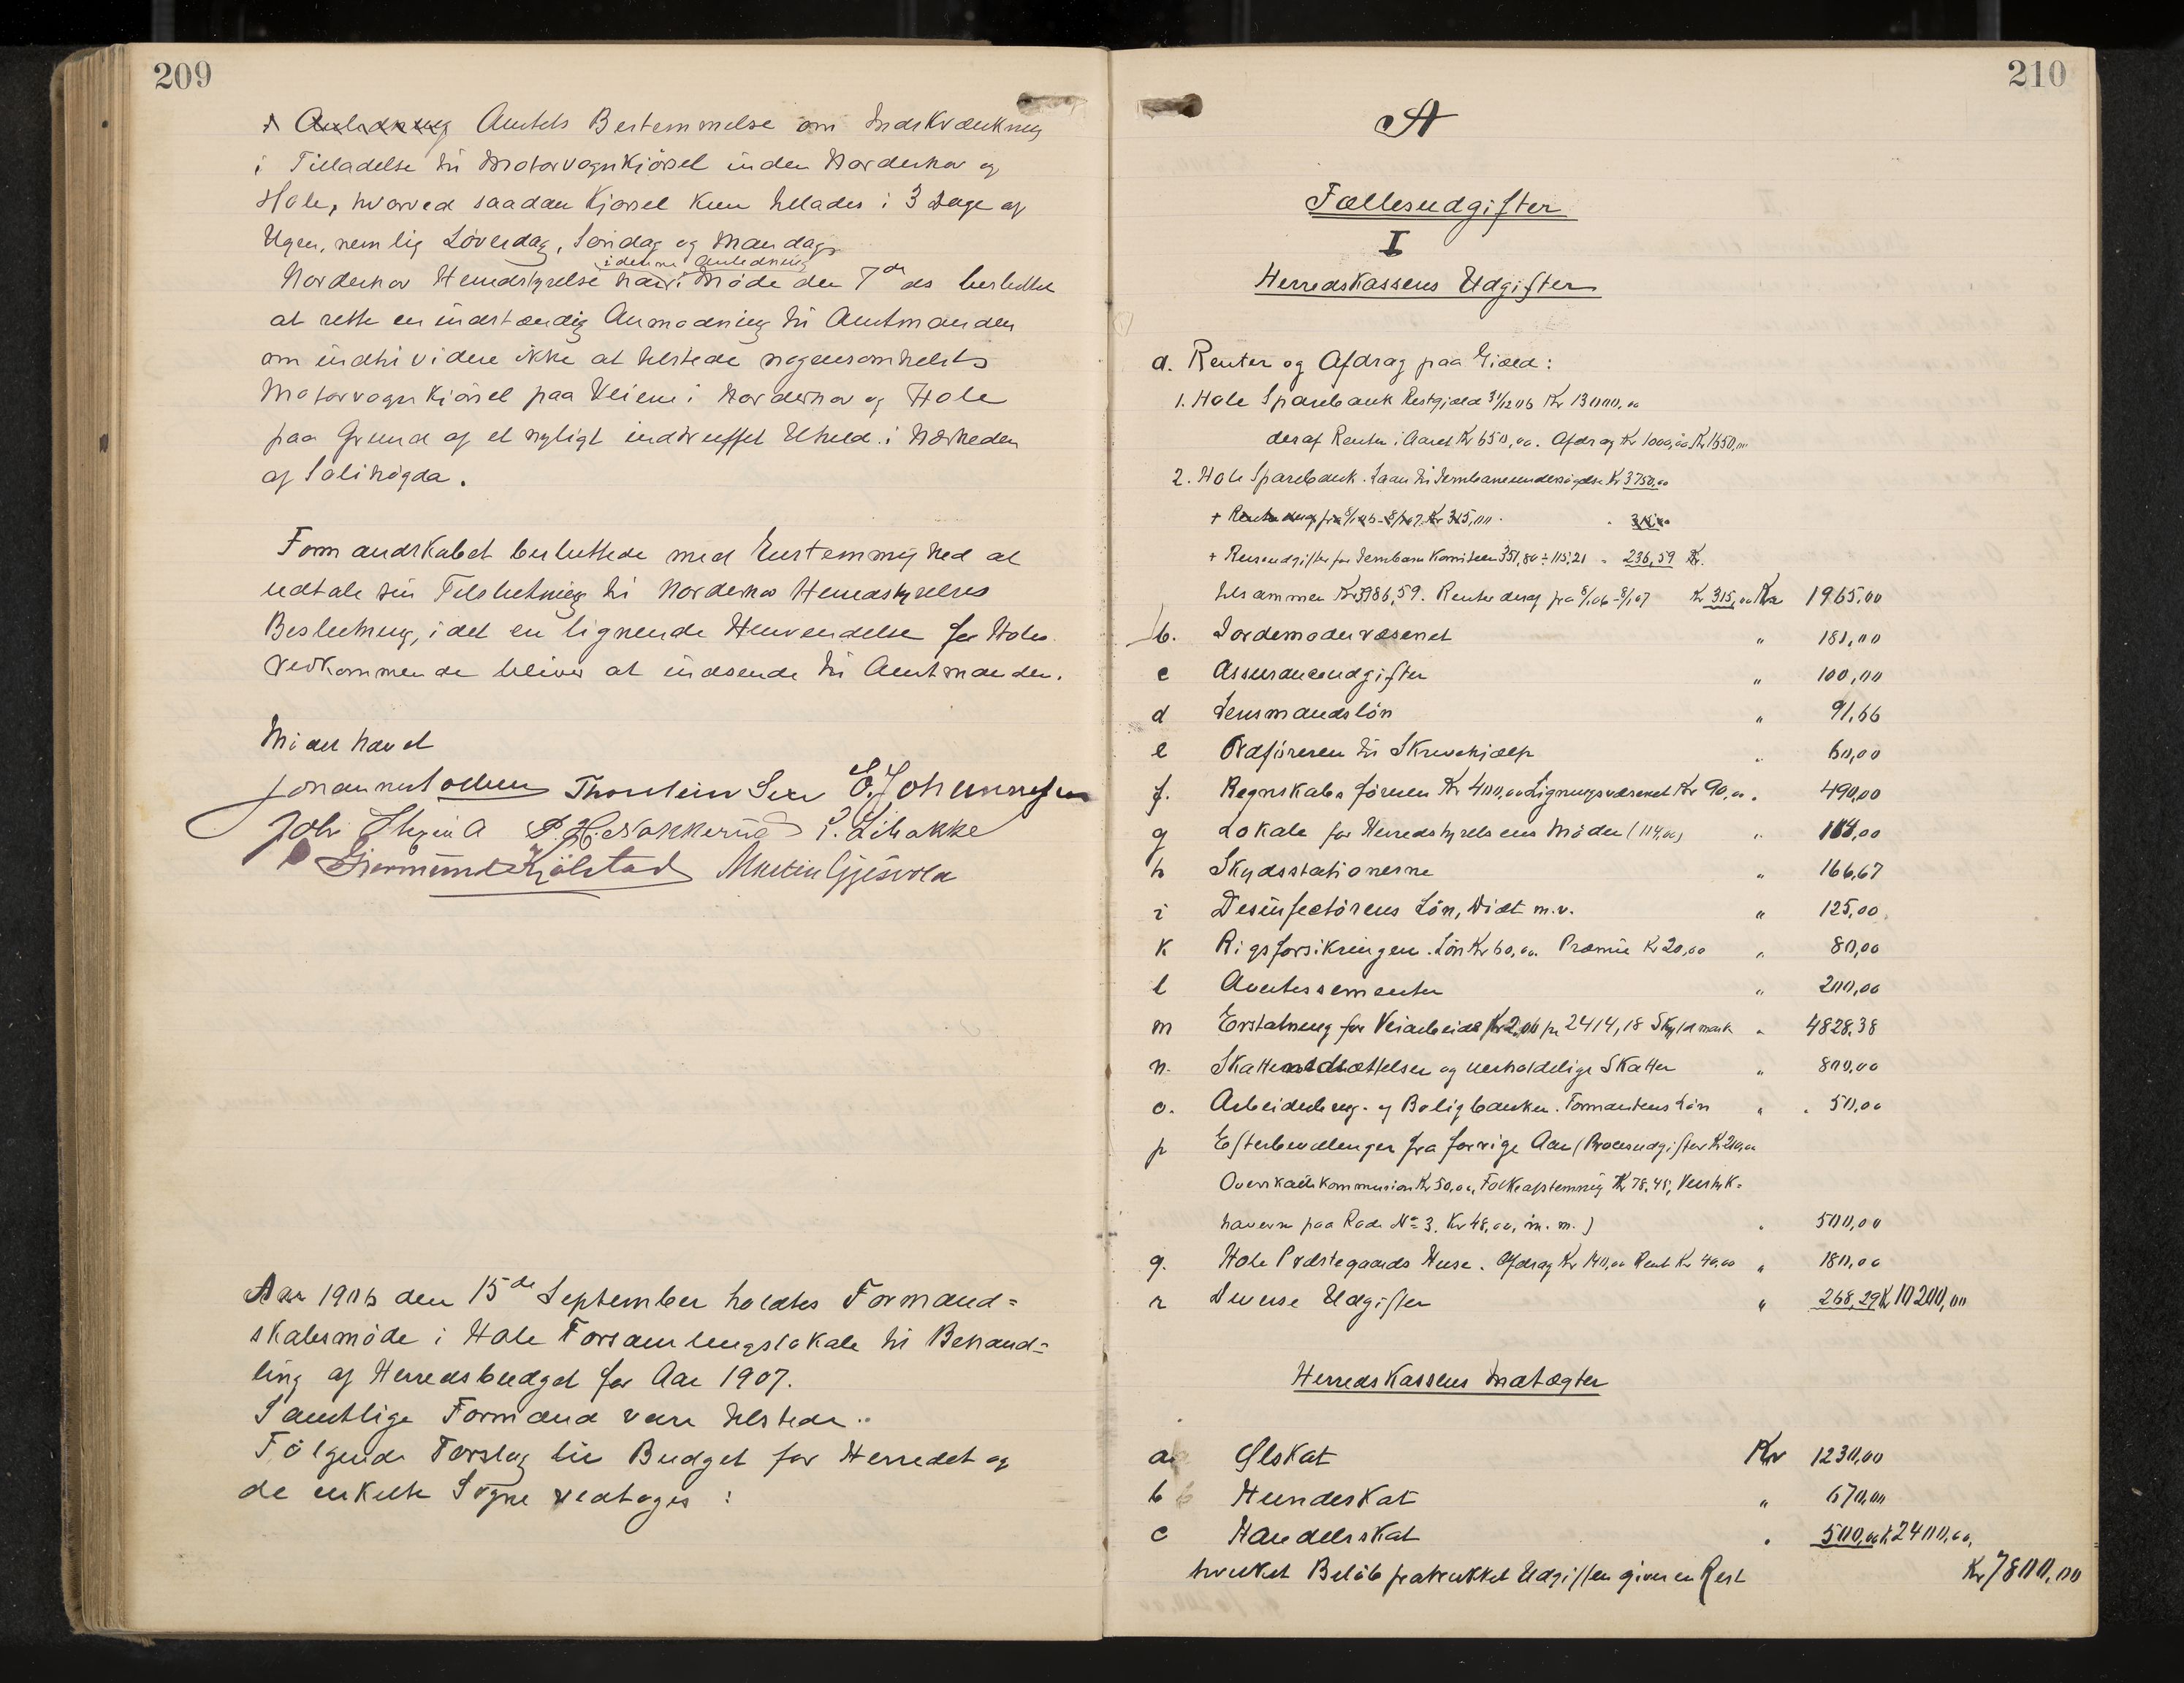 209
Amtets Bestemmelse om Indskrænkning
i Tilladelse til Motorvognkjørsel inden Norderhov og
Hole, hvorved saadan Kjørsel kun tillades i 3 Dage af
Ugen, nemlig Løverdag, Søndag og Mandag.
i denne Anledning
Norderhov Herredstyrelse har i Møde den 7de ds besluttet
at rette en indstændig Anmodning til Amtmanden
om indtil videre ikke at tilstede nogensomhelst
Motorvognkjørsel paa Veiene i Norderhov og Hole
paa Grund af et nyligt indtruffet Uheld i Nærheden
af Solihøgda.
Formandskabet besluttede med Enstemmighed at
udtale sin Tilslutning til Norderhov Herredstyrelses
Beslutning, idet en lignende Henvendelse for Holes
Vedkommende bliver at indsende til Amtmanden.
Møder hævet
Thorstein Sew E. Johannessen
P. H. Nakkerud P. Libakke
Gjermund Kjølstad Martin Gjesvold
Aar 1906 den 15de September holdtes Formand=
skabsmøde i Hole Forsamlingslokale til Behand=
ling af Herredsbudget for Aar 1907.
Samtlige Formænd vare tilstede.
Følgende Forslag til Budget for Herredet og
de enkelte Sogne vedtoges:
210
A
Fællesudgifter
I
Herredskassens Udgifter
a. Renter og Afdrag paa Gjæld:
1. Hole Sparebank Restgjæld 31/12 06 Kr 13000,00
deraf Renter i Aaret Kr 650,00. Afdrag Kr 1000,00 Kr 1650,00
2. Hole Sparebank. Laan til Jernbaneundersøgelse Kr 3750,00
+ Reiseudgifter for Jernbane Komiteen 351,80 ÷ 115,21 " 236,59 Kr.
tilsammen Kr 3986,59. Renter deraf fra 8/1 06 - 8/1 07 Kr 315,00 Kr 1965,00
b. Jordemodervæsenet " 181,00
c Assuranceudgifter " 100,00
d Lensmandsløn " 91,66
e Ordføreren til Skrivehjælp " 60,00
f. Regnskabsføreren Kr 400,00 Ligningsvæsenet Kr 90,00 " 490,00
g Lokale for Herredstyrelsens Møder (114,00) " 114,00
h Skydsstationerne " 166,67
i Desinfectørens Løn, Diæt m.v. " 125,00
k Rigsforsikringen. Løn Kr 60,00. Præmie Kr 20,00 " 80,00
l Avertissementer " 200,00
m Erstatning for Veiarbeide Kr 2,00 pr 2414,18 Skyldmark " 4828,38
n. Skattenedsættelser og uerholdelige Skatter " 800,00
o. Arbeiderbrug- og Boligbanken. Formandens Løn " 50,00
p Efterbevilgninger fra forrige Aar (Procesudgifter Kr 210,00
Overskattekommission Kr 50,00, Folkeafstemning Kr 78,45,
haverne paa Rode No 3. Kr 48,00, m. m.) " 500,00
q. Hole Præstegaards Huse. Afdrag Kr 140,00 Rent Kr 40,00 " 180,00
r Diverse Udgifter " 268,29 Kr 10200,00
Herredskassens Indtægter
a Ølskat Kr 1230,00
b Hundeskat " 670,00
c Handelsskat " 500,00 Kr 2400,00,
hvilket Beløb fratrukket Udgiften giver en Rest Kr 7800,00